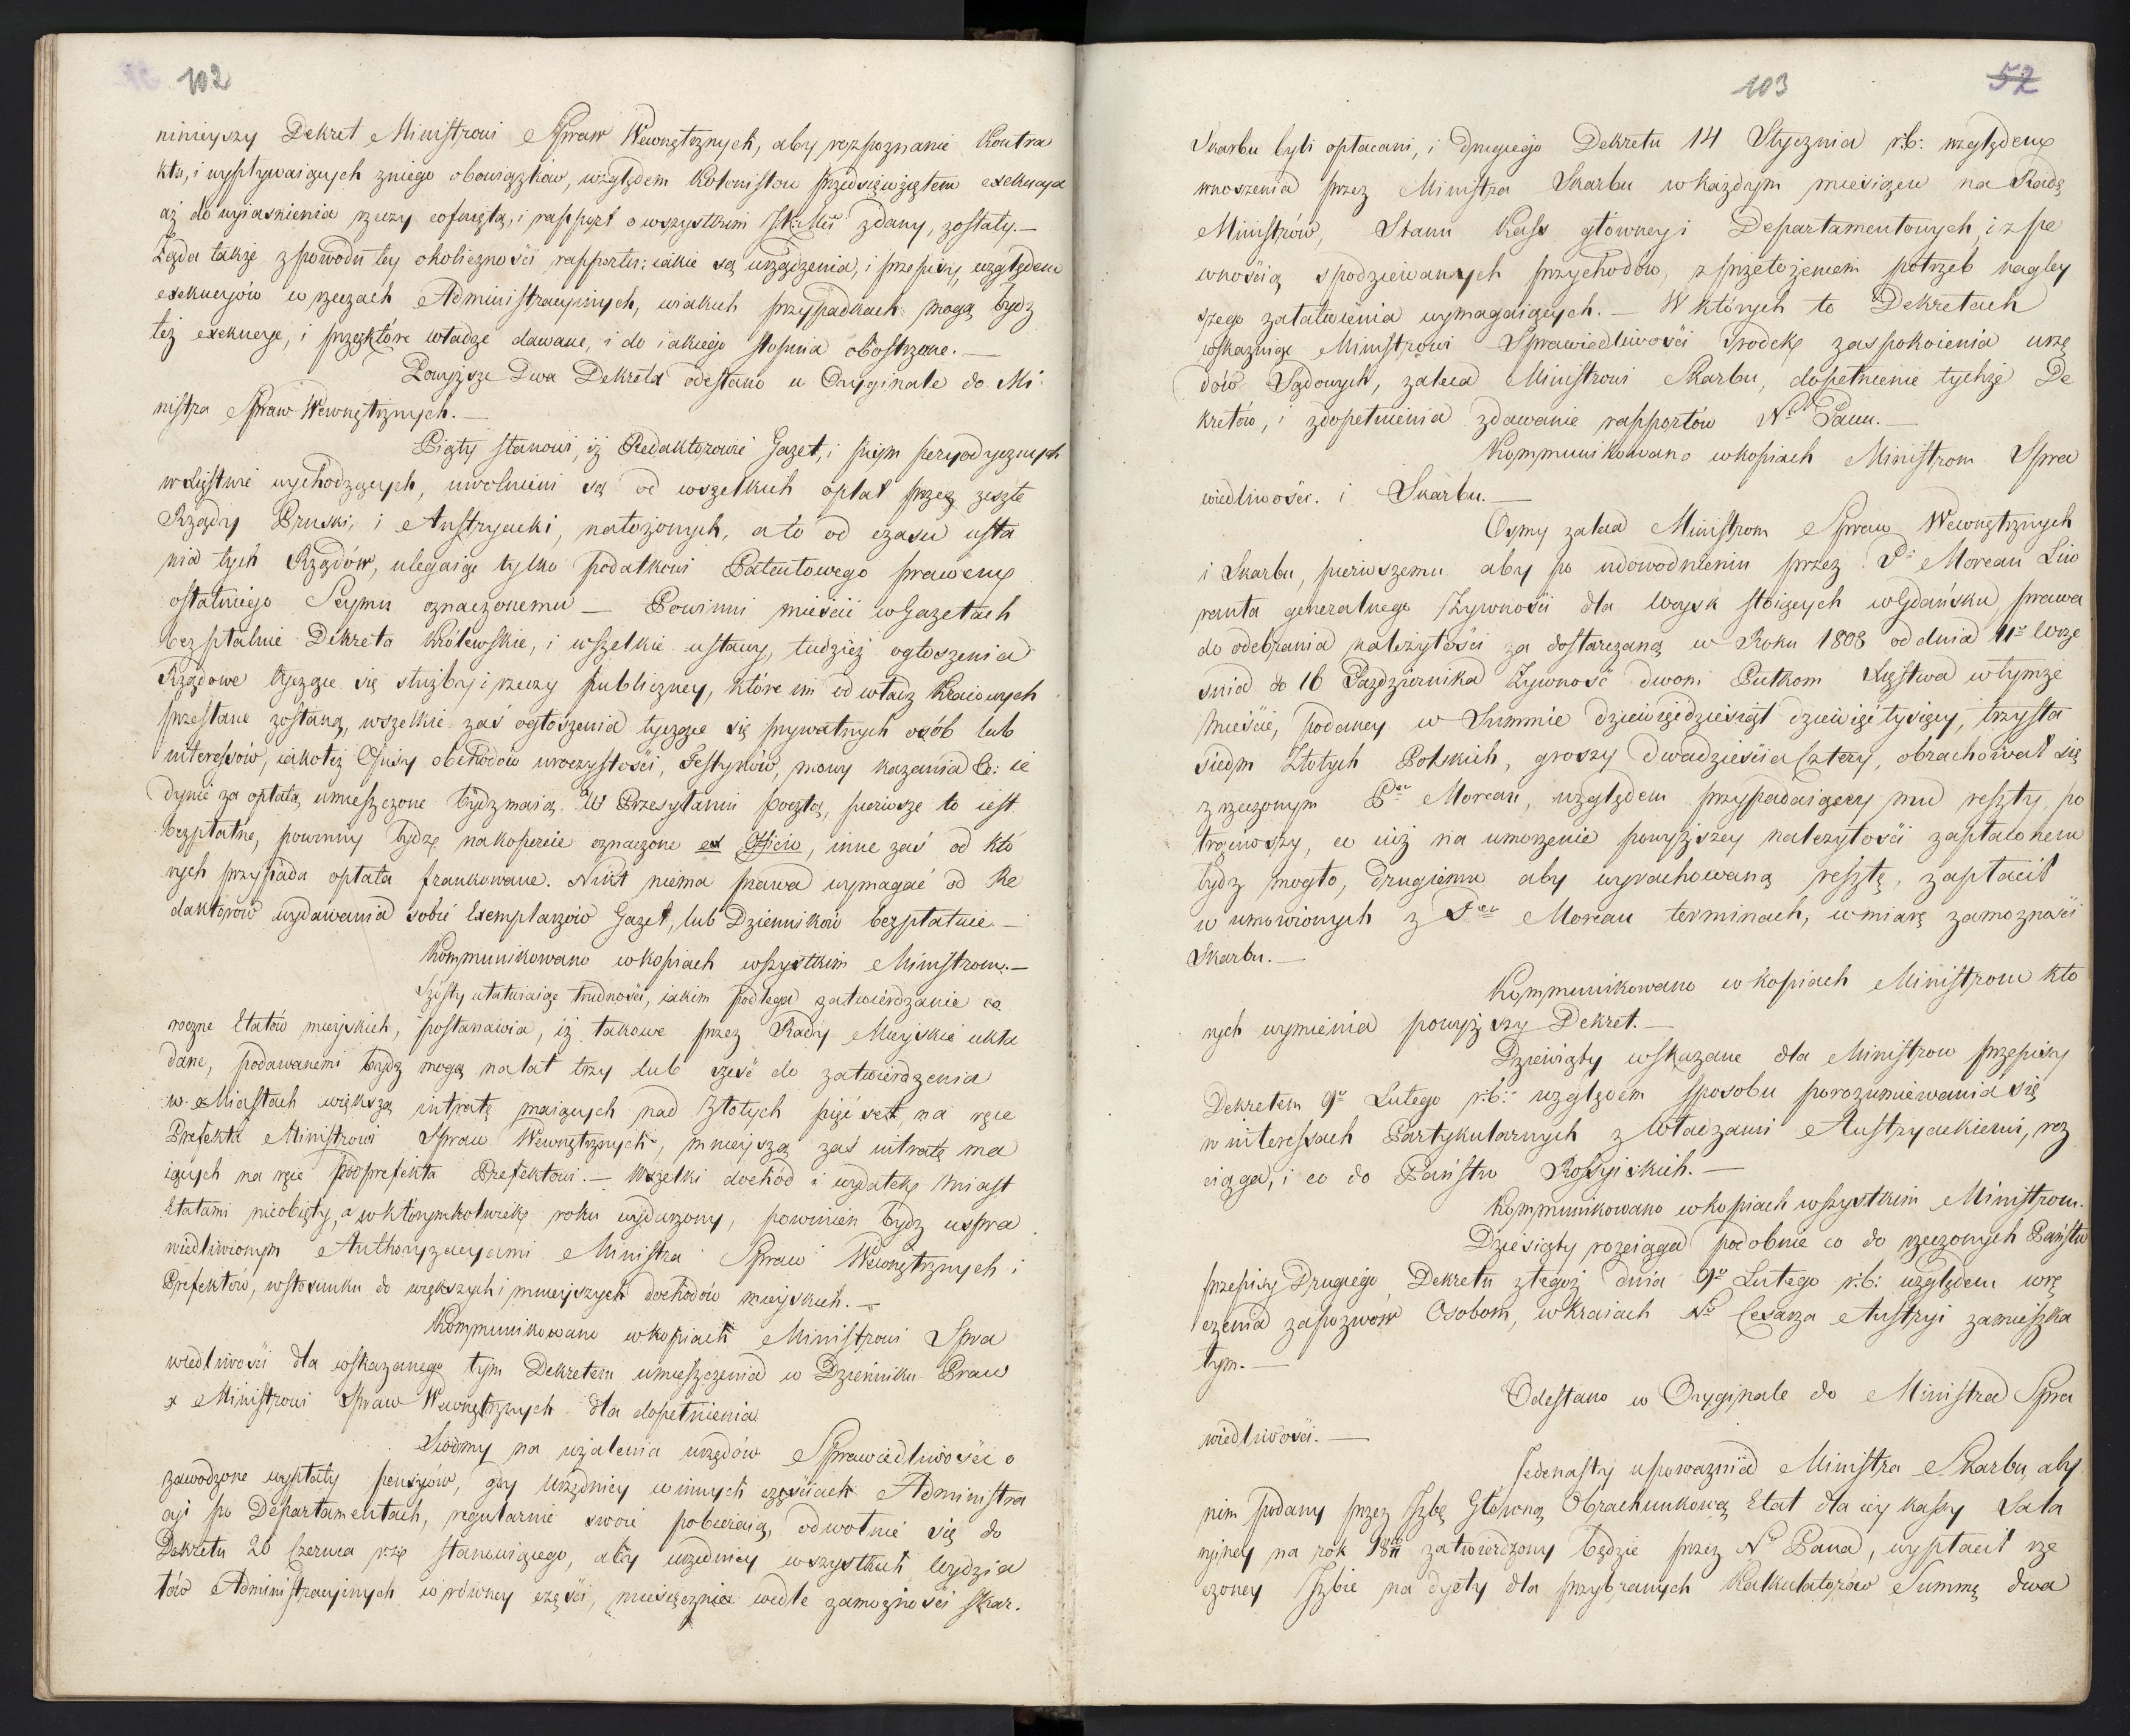 102
ninieyszy Dekret Ministrowi Spraw Wewnętrznych, aby rozpoznanie Kontra
ktu, i wypływaiących z niego obowiązków, względem Kolonistow przedsięwziętem exekucya
aż do wyiaśnienia rzeczy cofnięta, i rapport o wszystkim zdany, zostały.—
Żąda także z powodu tey okoliczności rapportu: iakie są urządzenia, i przepisy, względem
exekucyów w rzeczach Administracyinych, w iakich przypadkach mogą bydź
też exekucye, i przez które władze dawane, i do iakiego stopnia obostrzone.—
Powyższe Dwa Dekreta odesłano w Oryginale do Mi
nistra Spraw Wewnętrznych.—
Piąty stanowi, iż Redaktorowie Gazet, i pism peryodycznych
w Xięstwie wychodzących, uwolnieni są od wszelkich opłat przez zeszłe
Rządy Pruski, i Austryacki, nałożonych, a to od czasu usta
nia tych Rządów, ulegaiąc tylko podatkowi Patentowego prawem
ostatniego Seymu oznaczonemu — Powinni mieścić w Gazetach
bezpłatnie Dekreta Królewskie, i wszelkie ustawy, tudzież ogłoszenia
Rządowe tyczące się służby i rzeczy publiczney, które im od władz Kraiowych
przesłane zostaną, wszelkie zaś ogłoszenia tyczące się prywatnych osób lub
interessów, iakoteż Opisy obchodów uroczystości, Festynów, mowy kazania &c: ie
dynie za opłatą umieszczone bydź maią. W Przesyłaniu pocztą, pierwsze to iest
bezpłatne, powinny bydź na kopercie oznaczone ex Officio, inne zaś od któ
rych przypada opłata frankowane. Nikt niema prawa wymagać od Re
daktorów wydawania sobie Exemplarzów Gazet, lub Dzienników bezpłatnie.—
Kommunikowano w kopiach wszystkim Ministrom.—
Szósty ułatwiaiąc trudności, iakim podlega zatwierdzanie co
roczne Etatów mieyskich, postanawia, iż takowe przez Rady Mieyskie ukła
dane, podawanemi bydź mogą na lat trzy lub sześć do zatwierdzenia
w Miastach większą intratę maiących nad Złotych pięćset, na ręce
Prefekta Ministrowi Spraw Wewnętrznych, mnieyszą zaś intratę ma
iących na ręce Podprefekta Prefektowi.— Wszelki dochód i wydatek Miast
Etatami nieobięty, a w którymkolwiek roku wydarzony, powinien bydź uspra
wiedliwionym Authoryzacyami Ministra Spraw Wewnętrznych i
Prefektów, w stosunku do większych i mnieyszych dochodów mieyskich.—
Kommunikowano w kopiach Ministrowi Spra
wiedliwości dla wskazanego tym Dekretem umieszczenia w Dzienniku Praw
a Ministrowi Spraw Wewnętrznych dla dopełnienia
Siódmy na użalenia urzędów Sprawiedliwości o
zawodzone wypłaty pensyów, gdy urzędnicy w innych częściach Administra
cyi po Departamentach, regularnie swoie pobieraią, odwołuie się do
Dekretu 26 Czerwca stanowiącego, aby urzędnicy wszystkich Wydzia
łów Administracyinych w równey części, miesięcznie wedle zamożności Skar.
103 52
Skarbu byli opłacani, i drugiego Dekretu 14 Stycznia r:b: względem
wnoszenia przez Ministra Skarbu w każdym miesiącu na Radę
Ministrów, Stanu Kass główney i Departamentowych, i z pe
wnością spodziewanych przychodów, z przełożeniem potrzeb nagley
szego załatwienia wymagaiących.— W których to Dekretach
wskazuiąc Ministrowi Sprawiedliwości środek zaspokoienia urzę
dów Sądowych, zaleca Ministrowi Skarbu, dopełnienie tychże De
kretów, i z dopełnienia zdawanie rapportów N. Panu.—
Kommunikowano w kopiach Ministrom Spra
wiedliwości. i Skarbu.—
Osmy zaleca Ministrom Spraw Wewnętrznych
i Skarbu, pierwszemu aby po udowodnieniu przez P. Moreau Liw
ranta generalnego Żywności dla Woysk stoiących w Gdańsku, prawa
do odebrania należytości za dostarczaną w Roku 1808 od dnia 11go Wrze
śnia do 16 Października Żywność dwom Pułkom Xięstwa w tymże
Mieście, podaney w Summie dziewięćdziesiąt dziewięć tysięcy, trzysta
siedm Złotych Polskich, groszy dwadzieścia cztery, obrachował się
z rzeczonym P. Moreau, względem przypadaiącey mu reszty, po
trąciwszy, co iuż na umorzenie powyższey należytości zapłaconem
bydź mogło, drugiemu aby wyrachowaną resztę, zapłacił
w umówionych z P. Moreau terminach, w miarę zamożności
Skarbu.—
Kommunikowano w kopiach Ministrom któ
rych wymienia powyższy Dekret.—
Dziewiąty wskazane dla Ministrow przepisy
Dekretem 9go Lutego r:b: względem sposobu porozumiewania się
w interessach Partykularnych z Władzami Austryackiemi, roz
ciąga, i co do Państw Rossyiskich.—
Kommunikowano w kopiach wszystkim Ministrom.
Dziesiąty, rozciąga podobnie co do rzeczonych Państw
przepisy Drugiego Dekretu z tegoż dnia 9go Lutego r:b: względem wrę
czenia zapozwów Osobom, w kraiach N. Cesarza Austryi zamieszka
łym.—
Odesłano w Oryginale do Ministra Spra
wiedliwości.—
Jedenasty upoważnia Ministra Skarbu, aby
nim podany przez Izbę Główną Obrachunkową Etat dla iey kassy Sala
ryiney na rok zatwierdzony będzie przez N. Pana, wypłacił rze
czoney Izbie na dyety dla przybranych Kalkulatorów Summę dwa